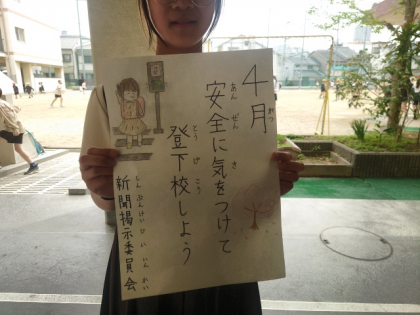 4月
がつ
安全に気をつけて
あん ぜん き
登下校しよう
とう げ こう
新聞掲示委員会
しん ぶん けい じ い いん かい